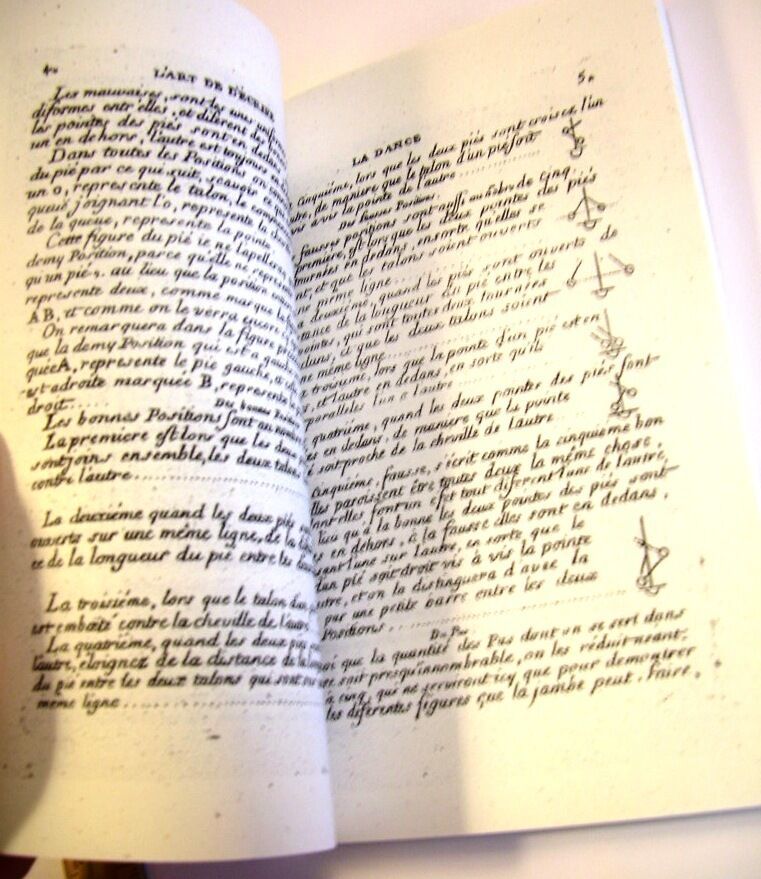 4.
L'ART DE DECRIRE
Les mauvaises, sont les unes
diformes entr'elles, et diferent
les pointes des piés sont en dedans
un en dehors, l'autre est toujours
Dans toutes les Positions on
du pié par ce qui suit, scavoir
un o, represente le talon, le
queue joignant l'o, represente la
de la queue, represente la pointe
Cette figure du pié ie ne l'apelleray
demy Position, parce qu'elle ne
qu'un pié. au lieu que la position
represente deux, comme marque la
AB, et comme on le verra encore
On remarquera dans la figure
que la demy Position qui est a gauche
quée A, represente le pié gauche,
est adroite marquée B, represente le
droit
Des bonnes Positions
Les bonnes Positions sont au
La premiere est lors que les deux
sont joins ensemble, les deux talons
contre l'autre
La deuxiéme quand les deux piés
ouverts sur une même ligne, de la
ce de la longueur du pié entre les deux
La troisiéme, lors que le talon d'un
est emboëté contre la cheville de l'autre
La quatriéme, quand les deux piés
l'autre, eloignez de la distance de la
du pié entre les deux talons qui sont
même ligne
5.
LA DANCE
Cinquiéme, lors que les deux piés sont croisez l'un
de maniere que le talon d'un pié soit
vis a vis la pointe de l'autre
Des fausses Positions.
fausses positions sont aussi au nôbre de cinq.
premiere, est lors que les deux pointes des piés
tournées en dedans, ensorte qu'elles se
et que les talons soient ouverts
une même ligne
deuxiéme, quand les piés sont ouverts de
distance de la longueur du pié entre les
pointes, qui sont toutes deux tournées
dedans, et que les deux talons soient
même ligne
troisiéme, lors que la pointe d'un pié est en
et l'autre en dedans, en sorte qu'ils
paralleles l'un a l'autre
quatriéme, quand les deux pointes des piés sont
en dedans, de maniere que la pointe
soit proche de la cheville de l'autre
Cinquiéme, fausse, s'écrit comme la cinquiéme bon
elles paroissent être toutes deux la même chose,
elles font un efet tout diferent l'une de l'autre,
lieu qu'a la bonne les deux pointes des piés sont
en dehors, à la fausse elles sont en dedans,
l'une sur l'autre, en sorte que le
d'un pié soit droit vis à vis la pointe
autre, et on la distinguera d'avec la
par une petite barre entre les deux
Positions
Du Pas
que la quantité des Pas dont on se sert dans
soit presqu'innombrable, on les réduit neant-
à cinq, qui ne serviront icy que pour demontrer
les diferentes figures que la jambe peut. Faire.